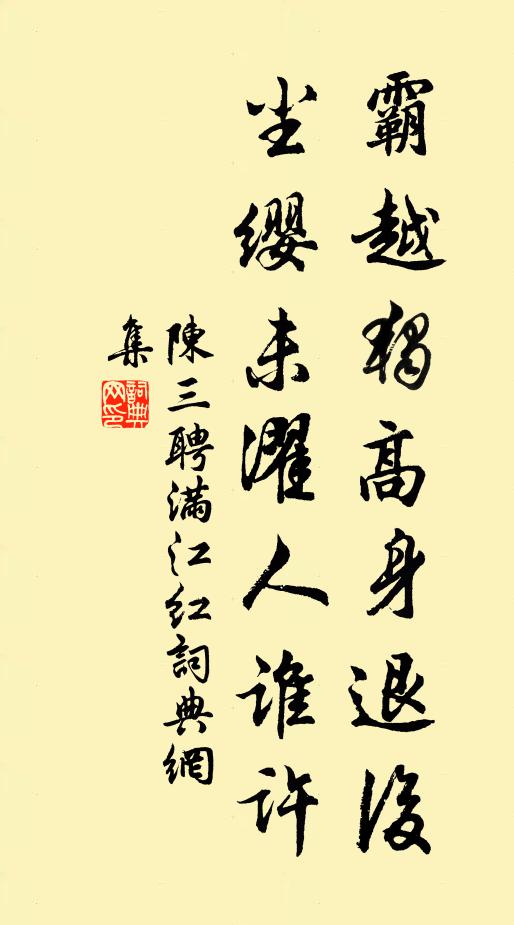 霸越獨高身退後
尘缨未濯人谁許
陳三聘滿江红詞典網
集
詞典
网印